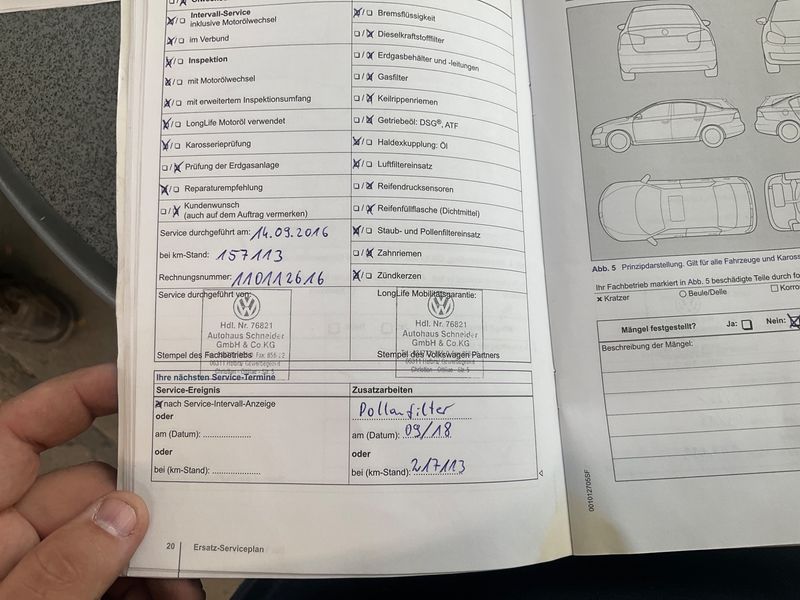 Intervall-Service
inklusive Motorölwechsel
im Verbund
Inspektion
mit Motorölwechsel
mit erweitertem Inspektionsumfang
LongLife Motoröl verwendet
Karosserieprüfung
Prüfung der Erdgasanlage
Reparaturempfehlung
Kundenwunsch
(auch auf dem Auftrag vermerken)
Service durchgeführt am: 14.09.2016
bei km-Stand: 157113
Rechnungsnummer: 110112616
Bremsflüssigkeit
Dieselkraftstofffilter
Erdgasbehälter und -leitungen
Gasfilter
Keilrippenriemen
Getriebeöl: DSG®, ATF
Haldexkupplung: Öl
Luftfiltereinsatz
Reifendrucksensoren
Reifenfüllflasche (Dichtmittel)
Staub- und Pollenfiltereinsatz
Zahnriemen
Zündkerzen
Service durchgeführt von:
Hdl. Nr. 76821
Autohaus Schneider
GmbH & Co.KG
Stempel des Fachbetriebs
LongLife Mobilitätsgarantie:
Hdl. Nr. 76821
Autohaus Schneider
GmbH & Co.KG
Stempel des Volkswagen Partners
Ihre nächsten Service-Termine
Service-Ereignis
nach Service-Intervall-Anzeige
oder
am (Datum):
oder
bei (km-Stand):
Zusatzarbeiten
Pollenfilter
am (Datum): 09/18
oder
bei (km-Stand): 217113
20 Ersatz-Serviceplan
Abb. 5 Prinzipdarstellung. Gilt für alle Fahrzeuge und Kaross
Ihr Fachbetrieb markiert in Abb. 5 beschädigte Teile durch fo
Kratzer Beule/Delle Korro
Mängel festgestellt? Ja: Nein:
Beschreibung der Mängel: